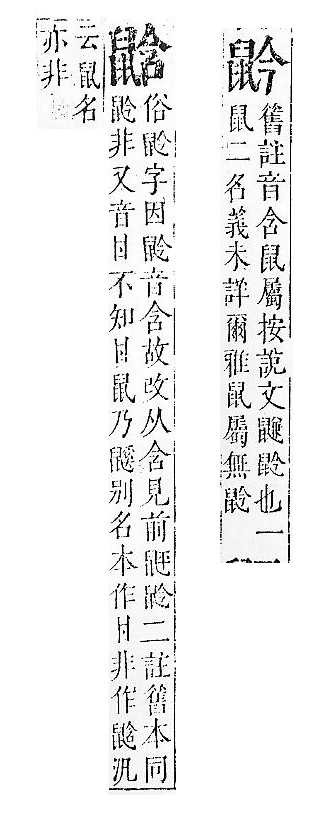 䶃
舊註音含鼠屬按說文鼸䶃也一
鼠二名義未詳爾雅鼠屬無䶃
䶎
俗䶃字因䶃音含故改从含見前䶃二註舊本同
䶃非又音甘不知甘鼠乃鼷别名本作甘非作䶎汎
云鼠名
亦非